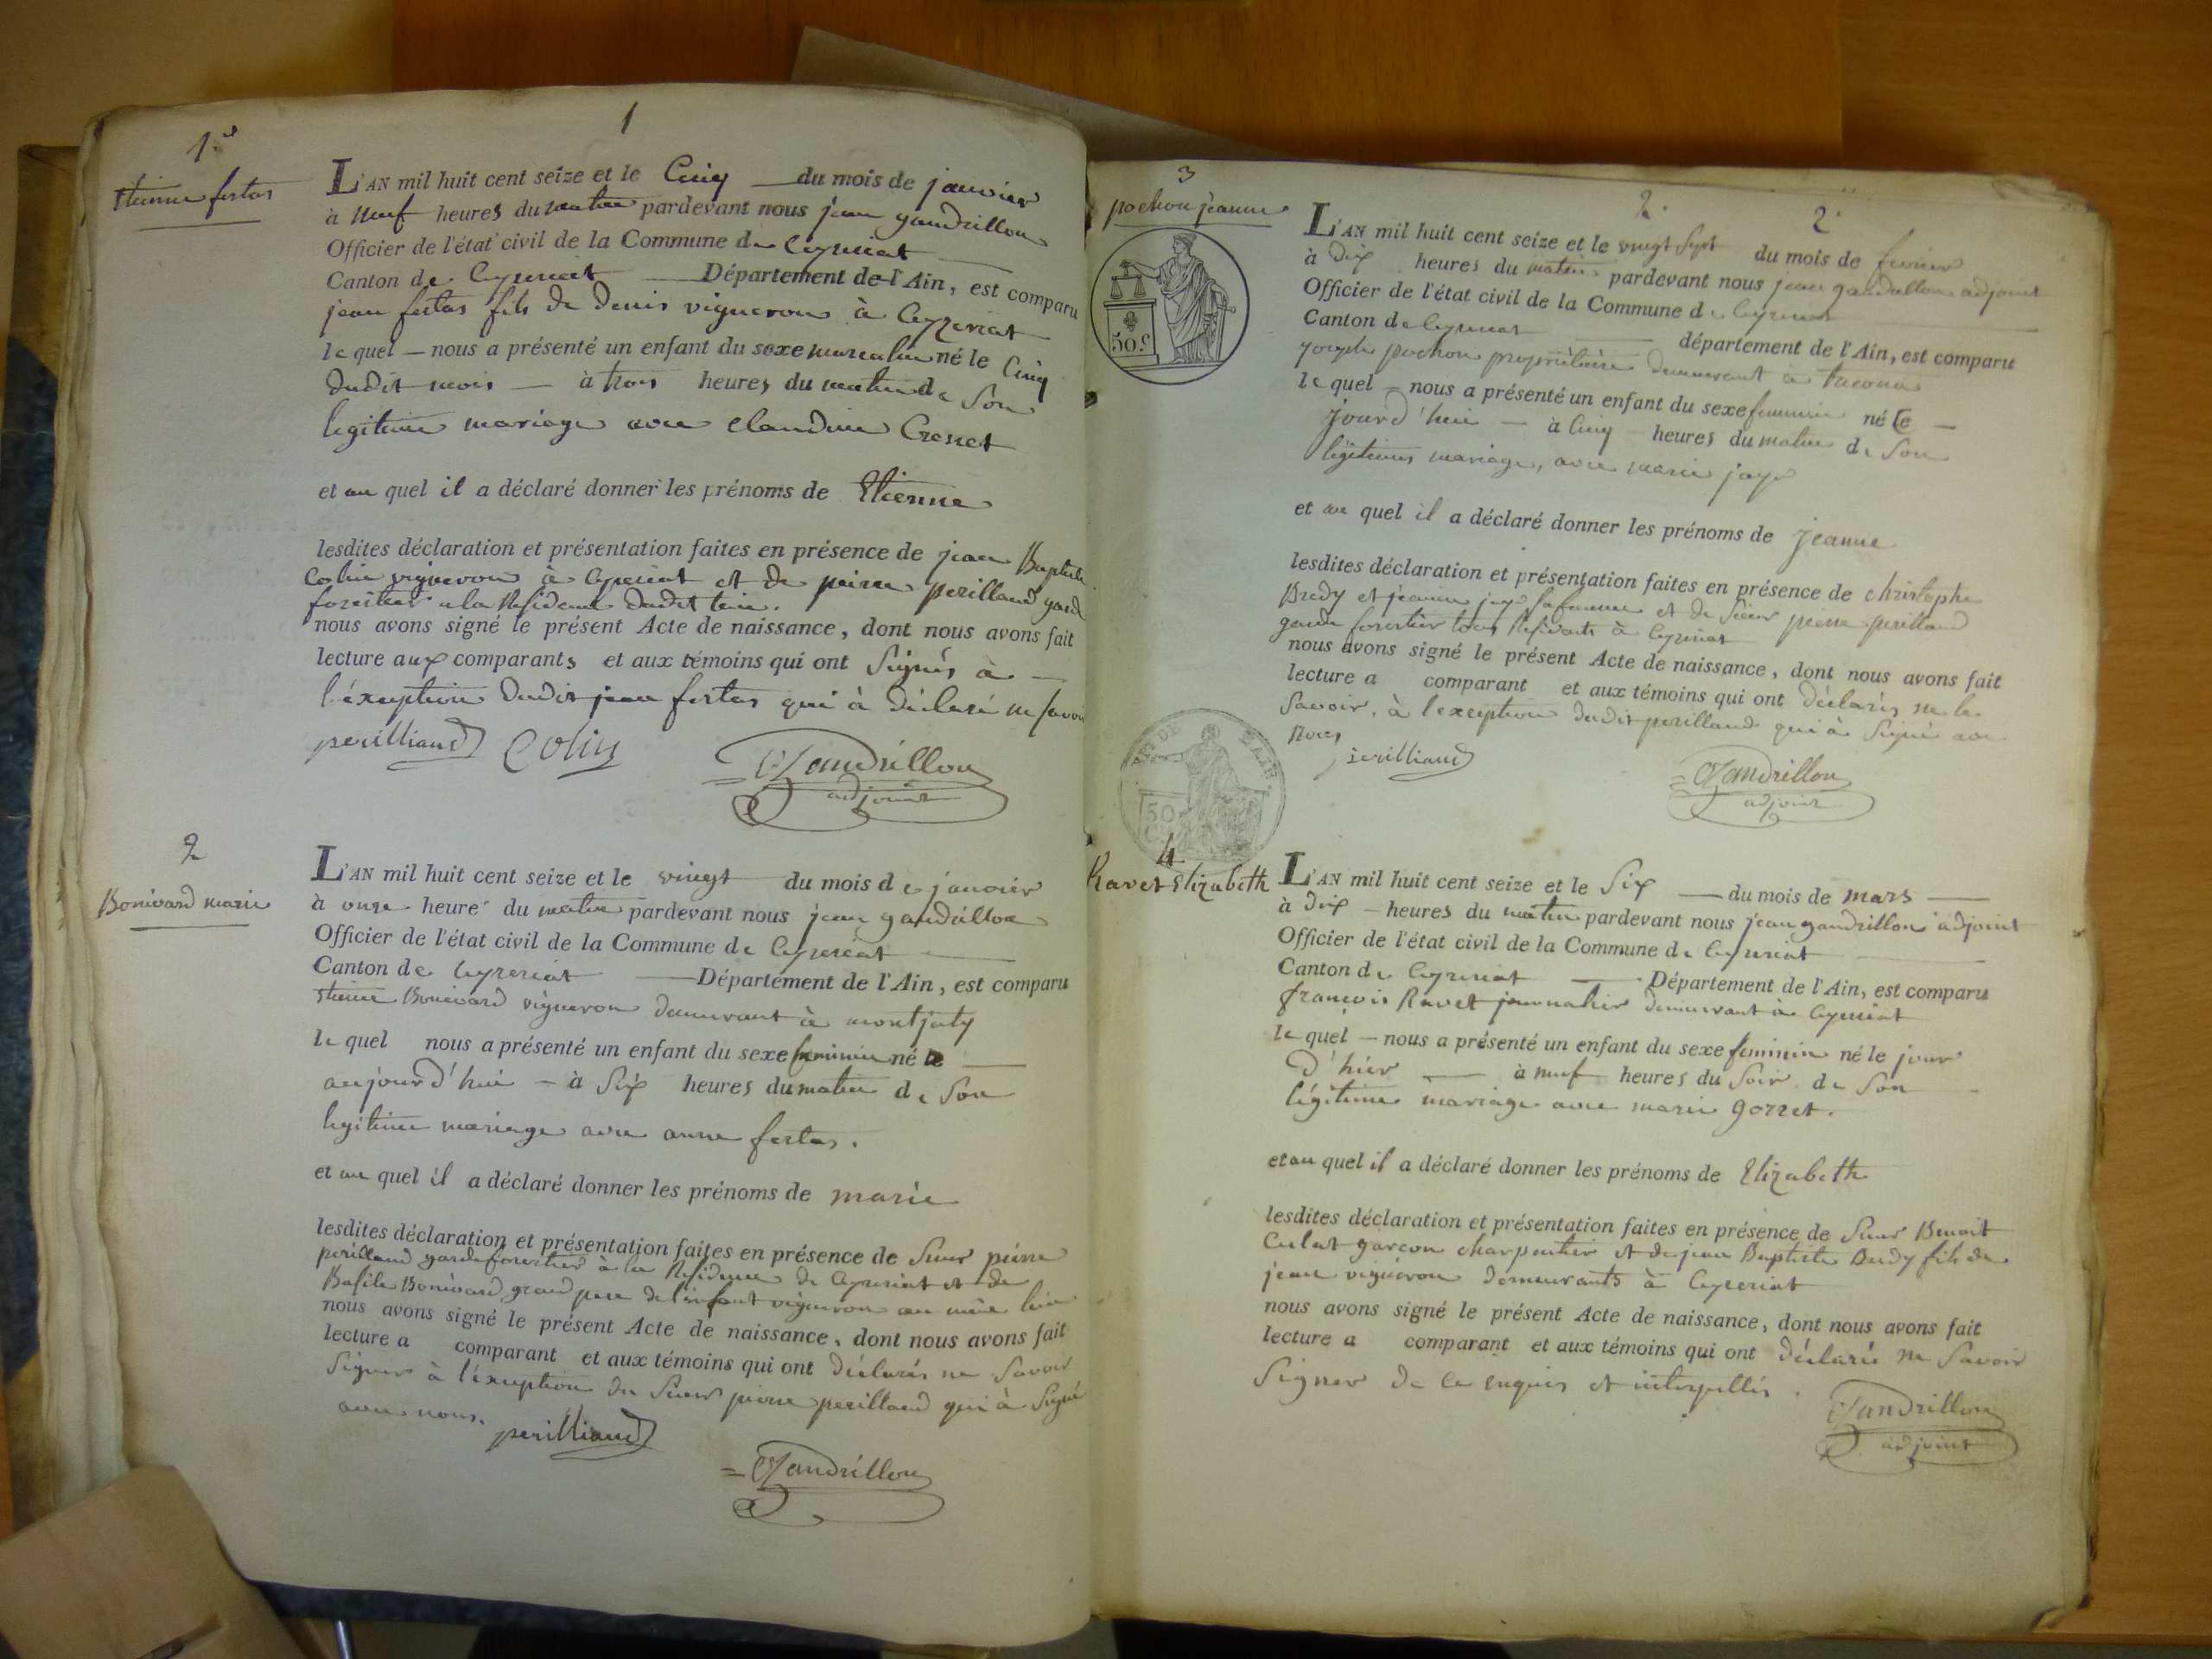 1
1.er
Etienne fertas
L'AN mil huit cent seize et le Cinq du mois de janvier
à neuf heures du matin pardevant nous jean gandrillon
Officier de l'état civil de la Commune de Ceyzeriat
Canton de Ceyzeriat Département de l'Ain, est comparu
jean fertas fils de denis vigneron à Ceyzeriat
lequel nous a présenté un enfant du sexe masculin né le Cinq
dudit mois à trois heures du matin de Son
legitime mariage avec claudine
et au quel il a déclaré donner les prénoms de Etienne
lesdites déclaration et présentation faites en présence de jean Baptiste
Colin vigneron à Ceyzeriat et de pierre perilland garde
forestier a la Residence dudit lieu.
nous avons signé le présent Acte de naissance, dont nous avons fait
lecture aux comparants et aux témoins qui ont Signés à
l'éxception dudit jean fertas qui à déclaré ne savoir
perilliand Colin Gandrillon
adjoint
2
Bonivard marie
L'AN mil huit cent seize et le vingt du mois de janvier
à onze heure du matin pardevant nous jean gandrillon
Officier de l'état civil de la Commune de Ceyzeriat
Canton de Ceyzeriat Département de l'Ain, est comparu
Etienne Bonivard vigneron demeurant à montjuly
le quel nous a présenté un enfant du sexe feminin né le
aujourd'hui à Six heures du matin de Son
legitime mariage avec anne fertas.
et au quel il a déclaré donner les prénoms de marie
lesdites déclaration et présentation faites en présence de Sieur pierre
perilland garde forestier à la Residence de Ceyzeriat et de
Basile Bonivard grand pere de l'enfant vigneron au même lieu
nous avons signé le présent Acte de naissance, dont nous avons fait
lecture a comparant et aux témoins qui ont déclarés ne Savoir
Signer à l'éxception du Sieur pierre perilland qui à Signé
avec nous. perilliand
Gandrillon
3
pochon jeanne
2. 2.
50.c
L'AN mil huit cent seize et le vingt Sept du mois de fevrier
à dix heures du matin pardevant nous jean gandrillon adjoint
Officier de l'état civil de la Commune de Ceyzeriat
Canton de Ceyzeriat département de l'Ain, est comparu
joseph pochon propriétaire demeurant à
le quel nous a présenté un enfant du sexe feminin né le
jourd'hui à Cinq heures du matin de Son
légitime mariage, avec marie
et au quel il a déclaré donner les prénoms de jeanne
lesdites déclaration et présentation faites en présence de christophe
Bredy et jeanne sa femme et de Sieur pierre perilland
garde forestier tous Residents à Ceyzeriat
nous avons signé le présent Acte de naissance, dont nous avons fait
lecture a comparant et aux témoins qui ont déclarés ne le
Savoir, à l'exception dudit perilland qui à Signé avec
nous
perilliand Gandrillon
adjoint
50
4
Ravet Elizabeth
L'AN mil huit cent seize et le Six du mois de mars
à dix heures du matin pardevant nous jean gandrillon adjoint
Officier de l'état civil de la Commune de Ceyzeriat
Canton de Ceyzeriat Département de l'Ain, est comparu
françois Ravet journalier demeurant à Ceyzeriat
le quel nous a présenté un enfant du sexe feminin né le jour
d'hier à neuf heures du Soir de Son
légitime mariage avec marie gorret.
et au quel il a déclaré donner les prénoms de Elizabeth
lesdites déclaration et présentation faites en présence de Sieur Benoit
Culat garçon charpentier et de jean Baptiste fils de
jean vigneron demeurants à Ceyzeriat
nous avons signé le présent Acte de naissance, dont nous avons fait
lecture a comparant et aux témoins qui ont déclarés ne Savoir
Signer de ce enquis et interpellés.
Gandrillon
adjoint